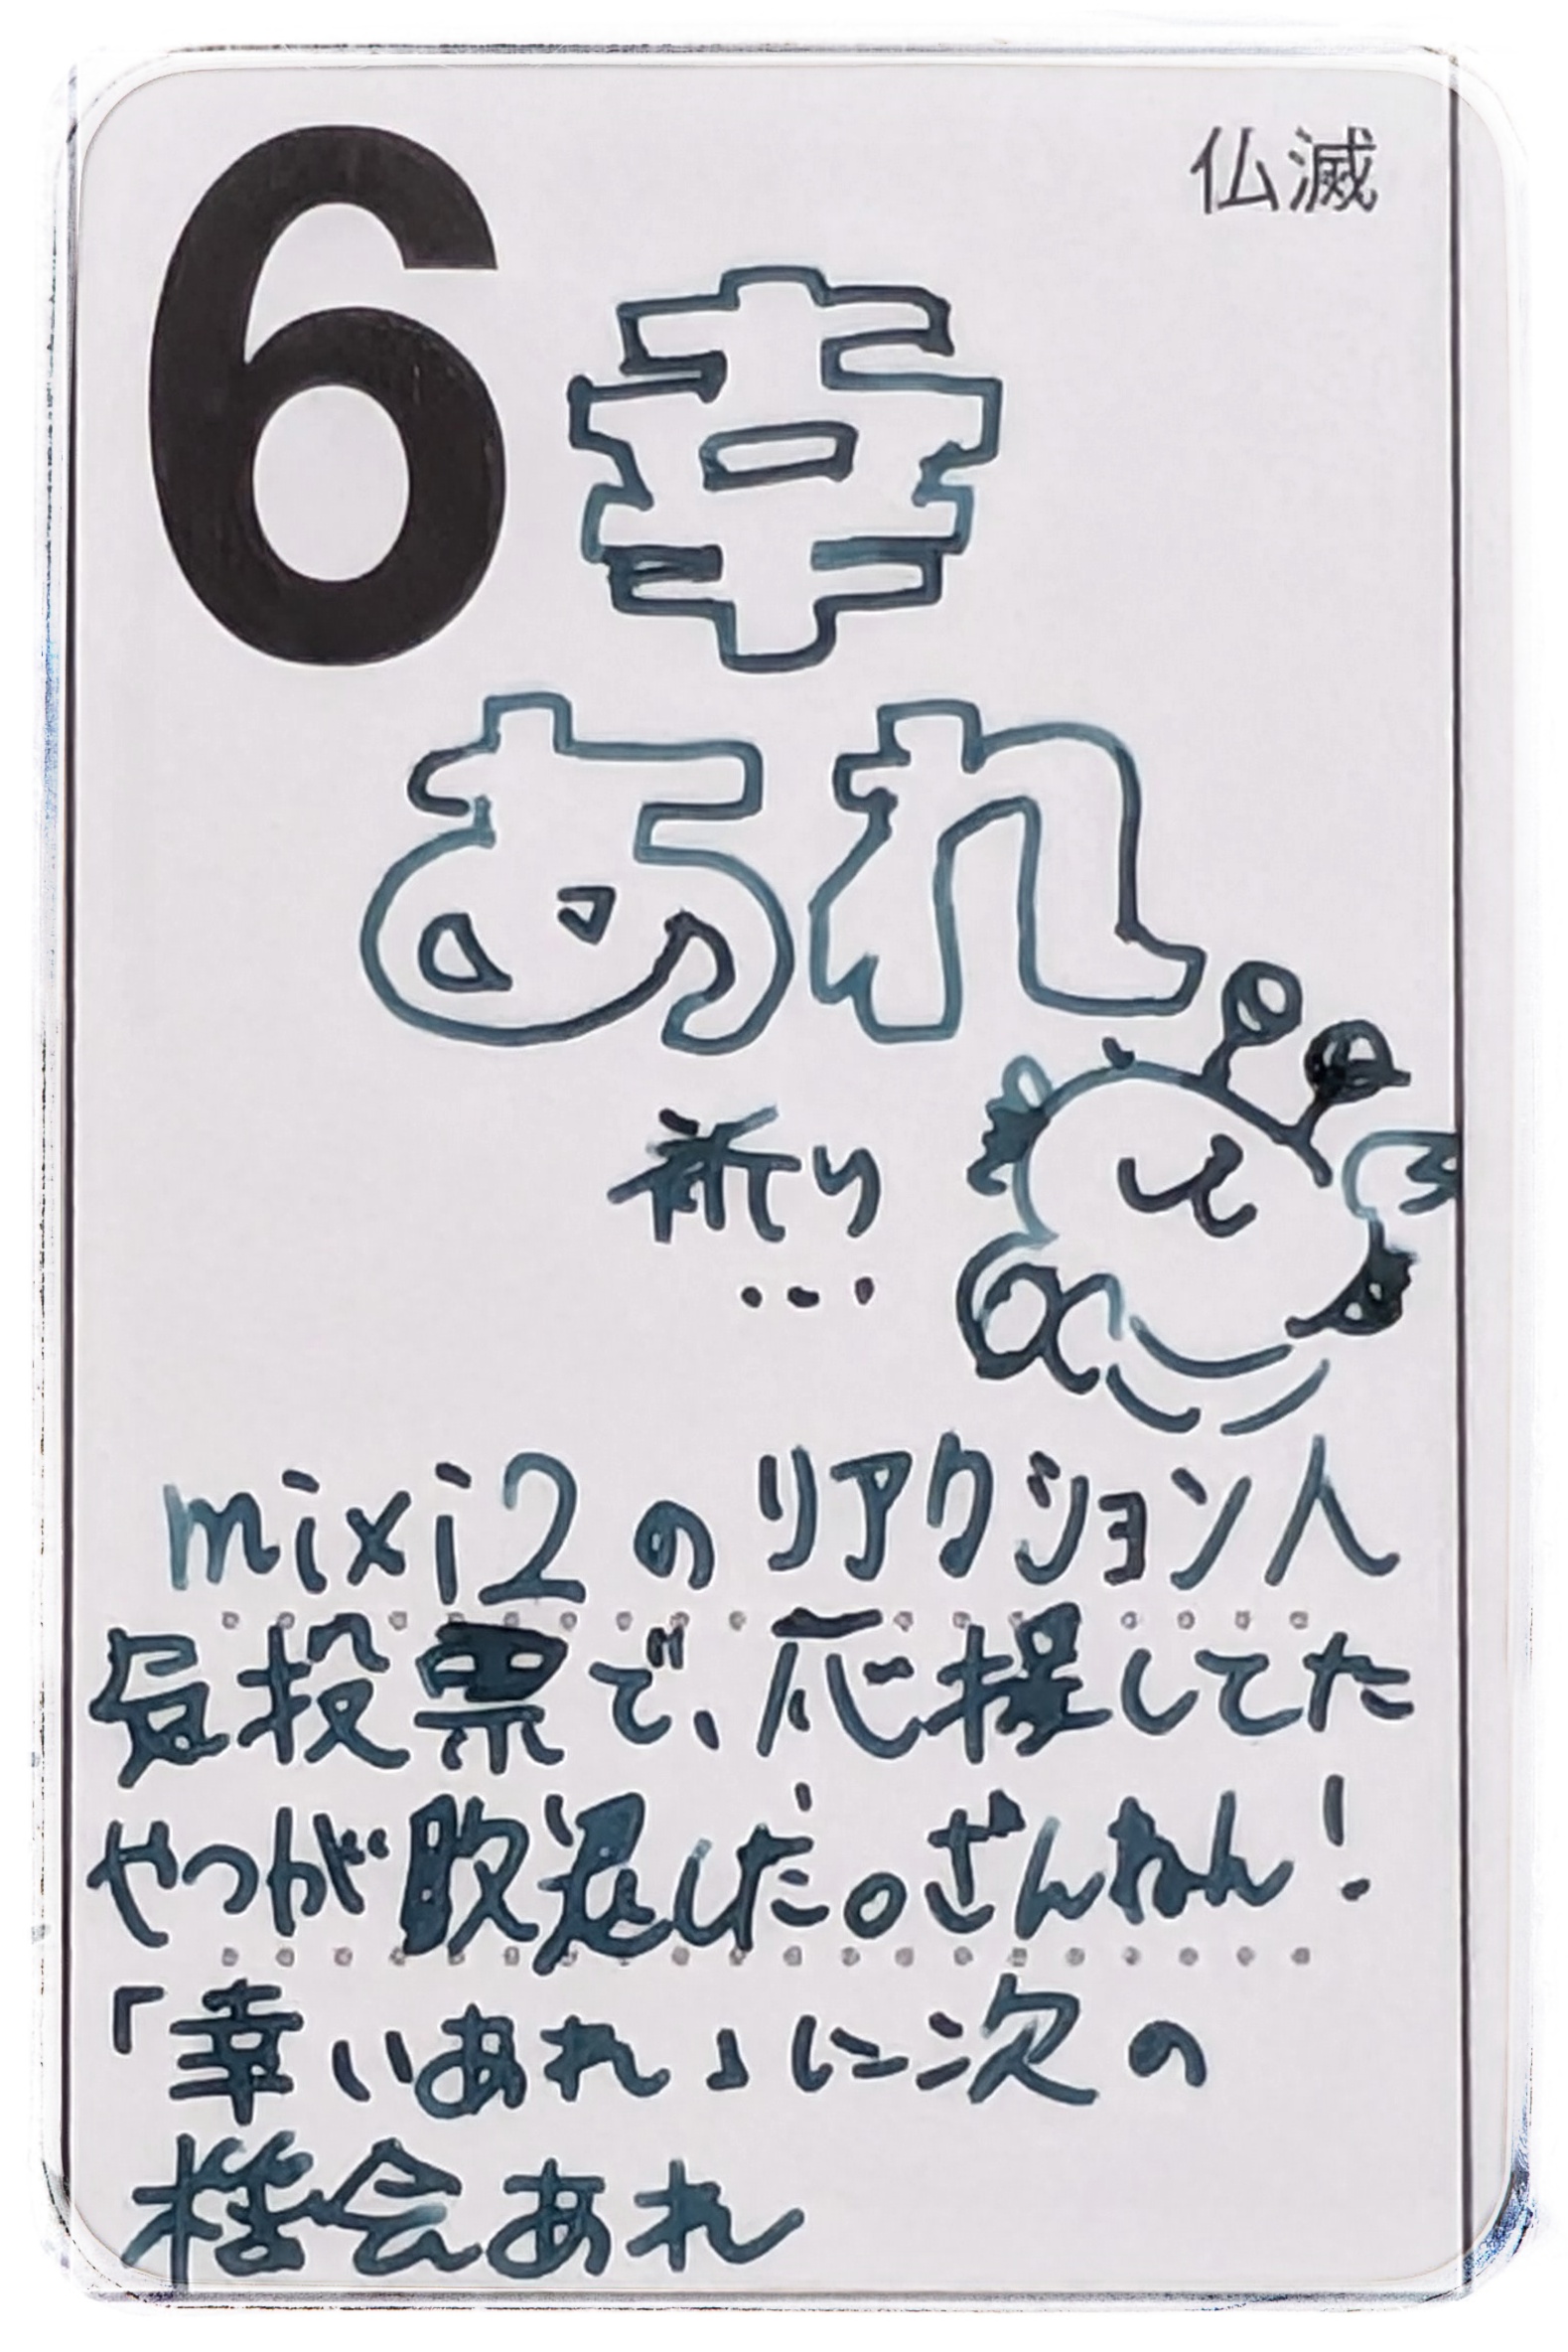 6
仏滅
幸
あれ
祈り
...
mixi2のリアクション人
気投票で、応援してた
やつが敗退した。ざんねん!
「幸いあれ」に次の
機会あれ